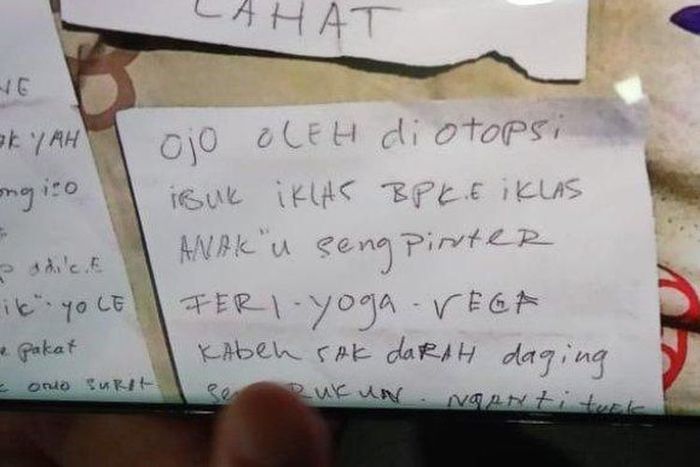 LAHAT
NE
AK YAH
ik" YO LE
pakat
ONO SURAt
OJO OLEH diotopsi
iBUK iKLAS BPK.E iKLAS
ANAK"u Seng PiNtER
FERI - Yoga - VEGA
KABEH SAK daRAH daging
RUKUN. NGANti tuEK